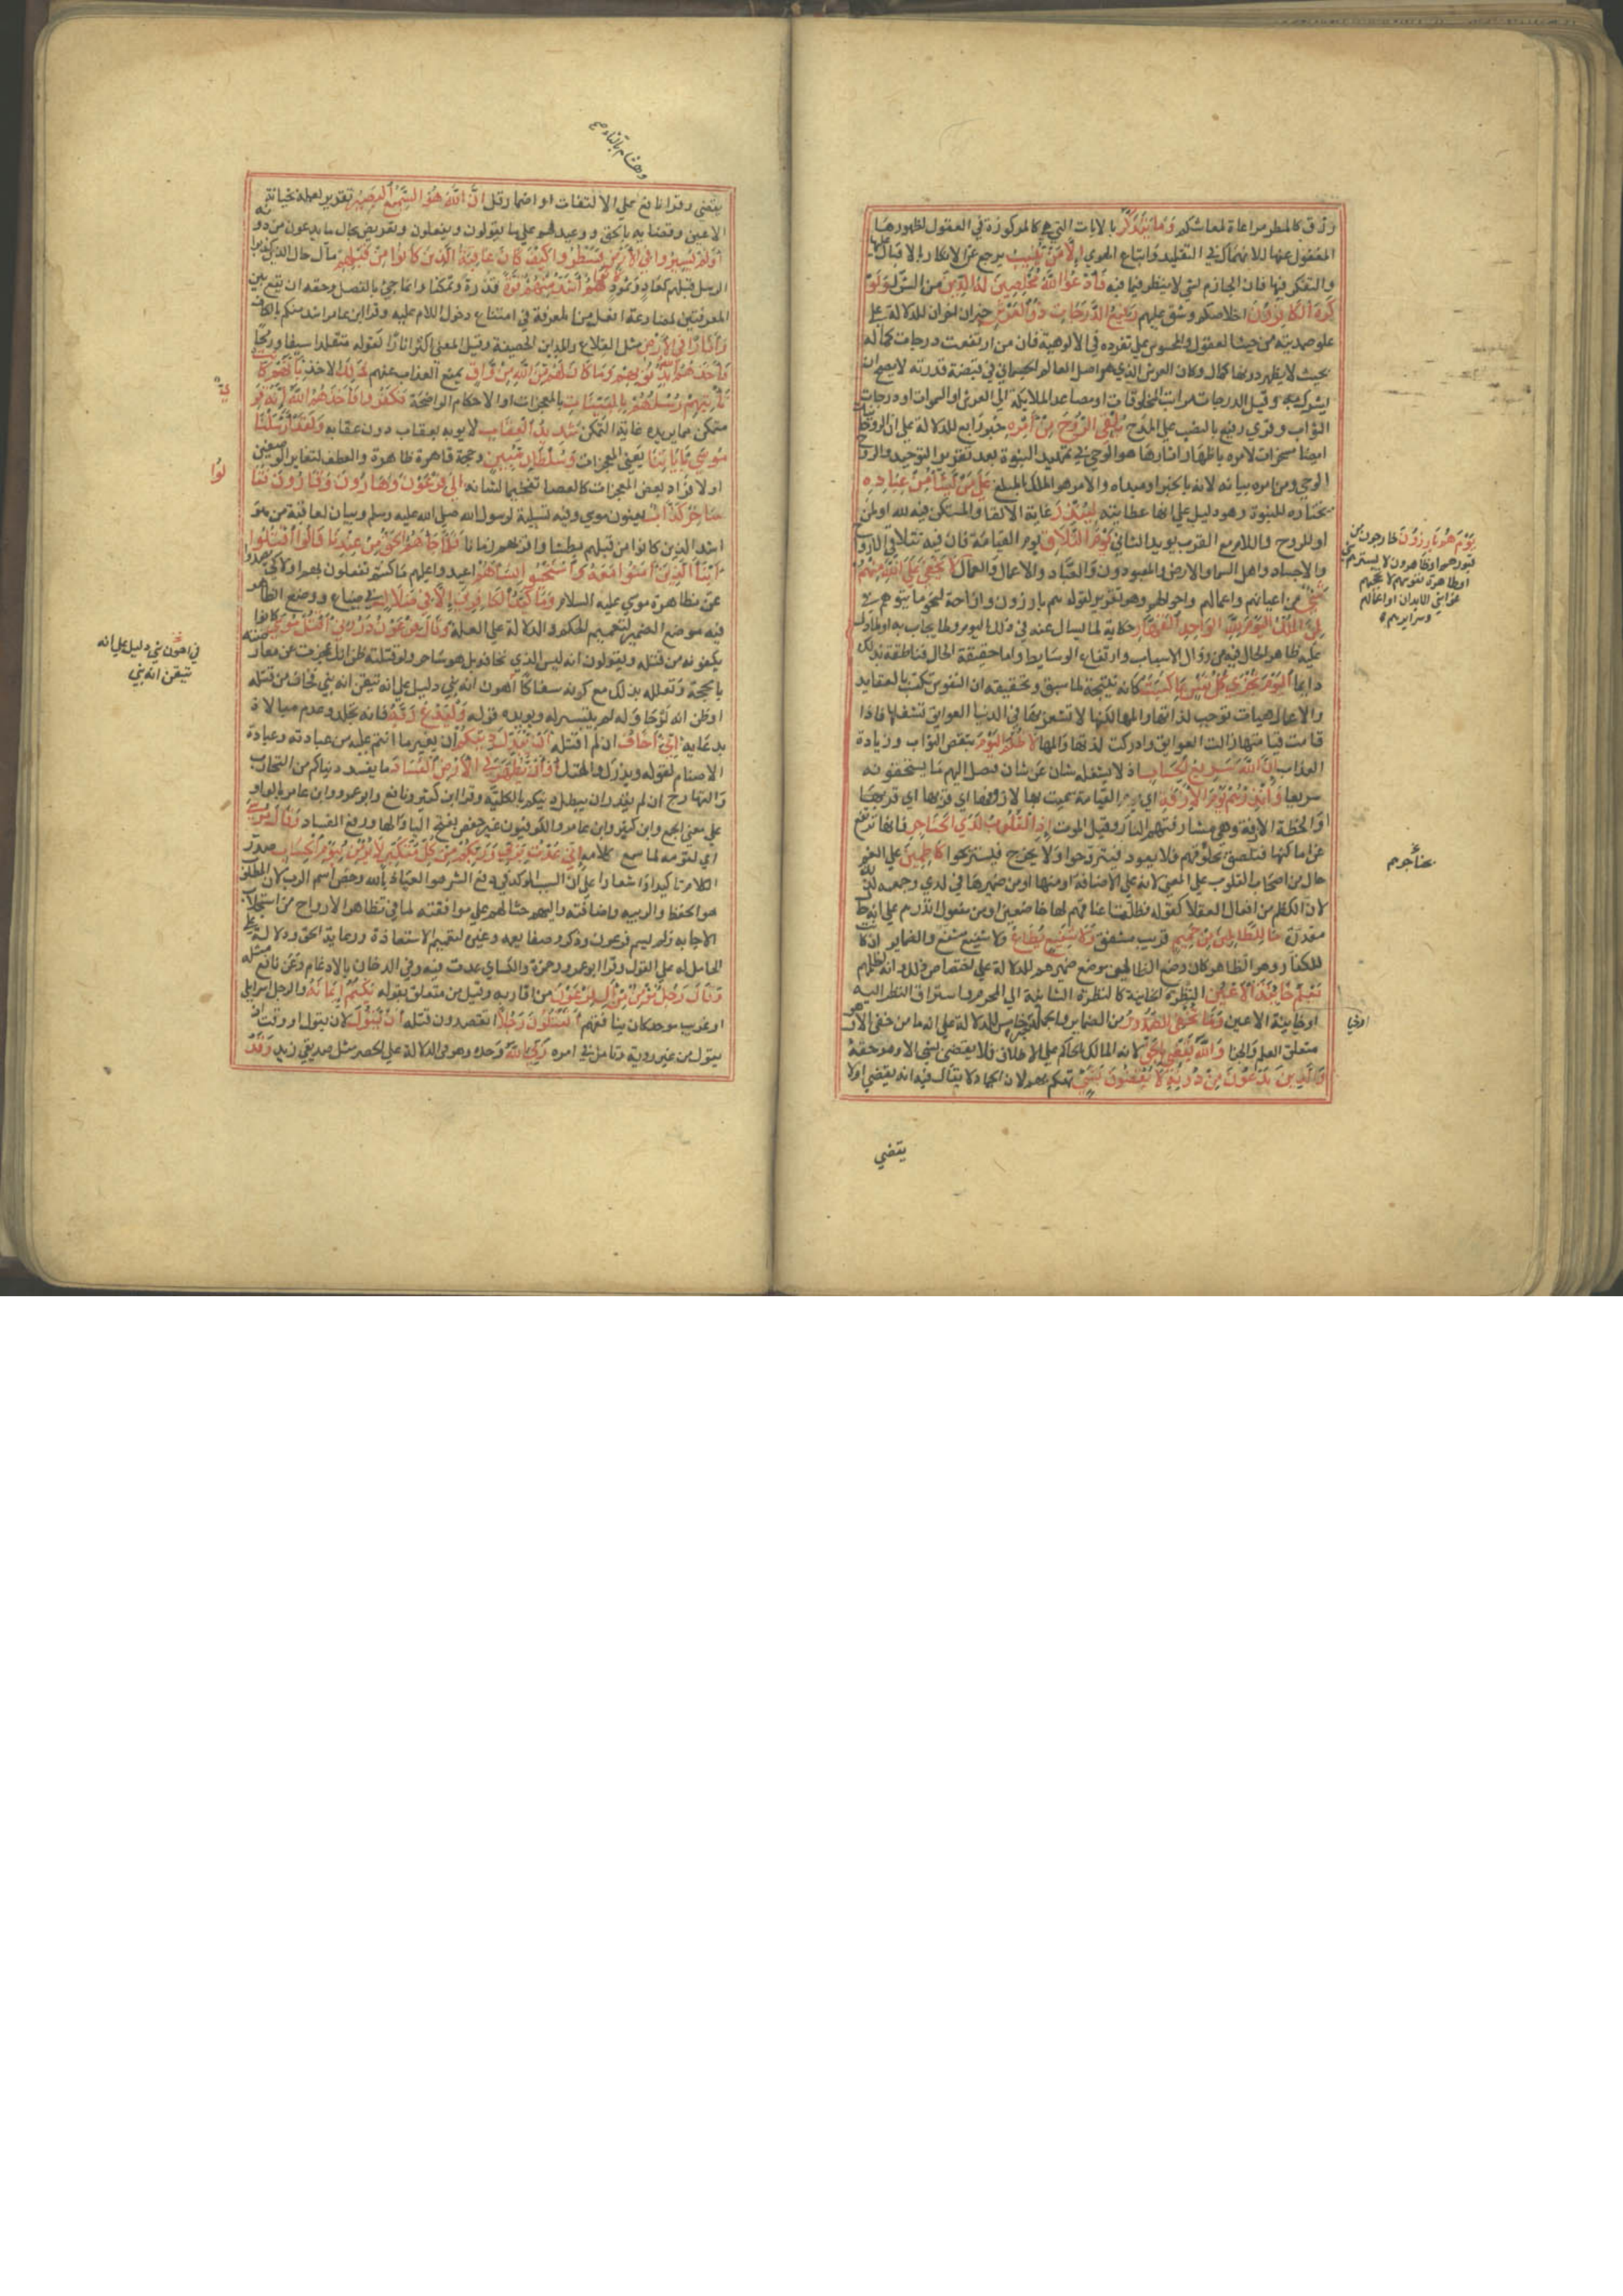 رزق كالمطر مراعاة لمعاشكم وَمَا يَتَذَكَّرُ بالايات التي هي كالمركوزة في العقول لظهورها
المغفول عنها للانهماك في التقليد واتباع الهوي إِلَّا مَنْ يُنِيبُ يرجع عن الانكار بالاقبال عليها
والتفكر فيها فان الجازم بشي لا ينظر فيما ينافيه فَادْعُوا اللَّهَ مُخْلِصِينَ لَهُ الدِّينَ من الشرك وَلَوْ
كَرِهَ الْكَافِرُونَ اخلاصكم وشق عليهم رَفِيعُ الدَّرَجَاتِ ذُو الْعَرْشِ خبران اخران للدلالة علي
علو صمديته من حيث المعقول والمحسوس علي تفرده في الالوهية فان من ارتفعت درجات كماله
بحيث لا يظهر دونها كمال وكان العرش الذي هو اصل العالم الجسماني في قبضة قدرته لا يصح ان
يشرك به وقيل الدرجات مراتب المخلوقات او مصاعد الملايكة الي العرش او السموات او درجات
الثواب وقري رفيع بالنصب علي المدح يُلْقِي الرُّوحَ مِنْ أَمْرِهِ خبر رابع للدلالة علي ان الروحانيات
ايضا مسخرات لامره باظهار اثارها هو الوحي في تمهيد النبوة بعد تقرير التوحيد والروح
الوحي ومن امره بيانه لانه بالخير او مبداه والامر هو الملك المبلغ عَلَى مَنْ يَشَاءُ مِنْ عِبَادِهِ
يختاره للنبوة وهو دليل علي انها عطائية لِيُنْذِرَ غاية الالقا والمستكن فيه لله او لمن
او للروح واللام مع القرب يويد الثاني يَوْمَ التَّلَاقِ يوم القيامة فان فيه تتلاقي الارواح
والاجساد واهل السما والارض والمعبودون والعباد والاعمال والعمال لَا يَخْفَى عَلَى اللَّهِ مِنْهُمْ
شَيْءٌ من اعيانهم واعمالهم واحوالهم وهو تقرير لقوله هم بارزون وازاحة لنحو ما يتوهم في
لِمَنِ الْمُلْكُ الْيَوْمَ لِلَّهِ الْوَاحِدِ الْقَهَّارِ حكاية لما يسال عنه في ذلك اليوم ولما يجاب به او لما دل
عليه ظاهر الحال فيه من زوال الاسباب وارتفاع الوسايط واما حقيقة الحال فناطقة بذلك
دايما الْيَوْمَ تُجْزَى كُلُّ نَفْسٍ بِمَا كَسَبَتْ كانه نتيجة لما سبق وتحقيقه ان النفوس تكتسب بالعقايد
والاعمال هيات توجب لذاتها والمها لكنها لا تشعر بها في الدنيا لعوايق تشغلها فاذا
قامت قيامتها زالت العوايق وادركت لذتها والمها لَا ظُلْمَ الْيَوْمَ بنقص الثواب وزيادة
العذاب إِنَّ اللَّهَ سَرِيعُ الْحِسَابِ اذ لا يشغله شان عن شان فيصل اليهم ما يستحقونه
سريعا وَأَنْذِرْهُمْ يَوْمَ الْآزِفَةِ اي يوم القيامة سميت بها لازوفها اي قربها
او الخطة الازفة وهي مشارفتهم النار وقيل الموت إِذِ الْقُلُوبُ لَدَى الْحَنَاجِرِ فانها ترتفع
عن اماكنها فتلصق بحلوقهم فلا يعود فيتروحوا ولا يخرج فيستريحوا كَاظِمِينَ علي الغم
حال من اصحاب القلوب علي المعني لانه علي الاضافة او منها او من ضميرها في لدي وجمعه كذلك
لان الكظم من افعال العقلا كقوله فظلت اعناقهم لها خاضعين او من مفعول انذرهم علي انه حال
مقدرة مَا لِلظَّالِمِينَ مِنْ حَمِيمٍ قريب مشفق وَلَا شَفِيعٍ يُطَاعُ ولا شفيع مشفع والضماير ان كانت
للكفار وهو الظاهر كان وضع الظالمين موضع ضميرهم للدلالة علي اختصاص ذلك وانه لظلمهم
يَعْلَمُ خَائِنَةَ الْأَعْيُنِ النظرة الخاينة كالنظرة الثانية الي المحرم واستراق النظر اليه
او خاينة الاعين وَمَا تُخْفِي الصُّدُورُ من الضماير والجملة خبر خامس للدلالة علي انه ما من خفي الا وهو
متعلق العلم والجزا وَاللَّهُ يَقْضِي بِالْحَقِّ لانه المالك الحاكم علي الاطلاق فلا يقضي بشي الا وهو حقه
وَالَّذِينَ يَدْعُونَ مِنْ دُونِهِ لَا يَقْضُونَ بِشَيْءٍ تهكم بهم لان الجماد لا يقال فيه انه يقضي او لا
يقضي
يَوْمَ هُمْ بَارِزُونَ خارجون من
قبورهم او ظاهرون لا يسترهم شي
او ظاهرة نفوسهم لا تحجبهم
غواشي الابدان او اعمالهم
وسرايرهم
حناجرهم
وهشام بالتاء صح
يقضي وقرا نافع علي الالتفات او اضمار قل إِنَّ اللَّهَ هُوَ السَّمِيعُ الْبَصِيرُ تقرير لعلمه بخيانة
الاعين وقضايه بالحق ووعيد لهم علي ما يقولون ويفعلون وتعريض بحال ما يدعون من دونه
أَوَلَمْ يَسِيرُوا فِي الْأَرْضِ فَيَنْظُرُوا كَيْفَ كَانَ عَاقِبَةُ الَّذِينَ كَانُوا مِنْ قَبْلِهِمْ مال حال الذين كذبوا
الرسل قبلهم كعاد وثمود كَانُوا هُمْ أَشَدَّ مِنْهُمْ قُوَّةً قدرة وتمكنا وانما جي بالفصل وحقه ان يقع بين
المعرفتين لمضارعة افعل من للمعرفة في امتناع دخول اللام عليه وقرا ابن عامر اشد منكم بالكاف
وَآثَارًا فِي الْأَرْضِ مثل القلاع والمداين الحصينة وقيل المعني اكثر اثارا كقوله متقلدا سيفا ورمحا
فَأَخَذَهُمُ اللَّهُ بِذُنُوبِهِمْ وَمَا كَانَ لَهُمْ مِنَ اللَّهِ مِنْ وَاقٍ يمنع العذاب عنهم ذَلِكَ الاخذ بِأَنَّهُمْ كَانَتْ
تَأْتِيهِمْ رُسُلُهُمْ بِالْبَيِّنَاتِ بالمعجزات او الاحكام الواضحة فَكَفَرُوا فَأَخَذَهُمُ اللَّهُ إِنَّهُ قَوِيٌّ
متمكن مما يريده غاية التمكن شَدِيدُ الْعِقَابِ لا يوبه بعقاب دون عقابه وَلَقَدْ أَرْسَلْنَا
مُوسَى بِآيَاتِنَا يعني المعجزات وَسُلْطَانٍ مُبِينٍ وحجة قاهرة ظاهرة والعطف لتغاير الوصفين
او لافراد بعض المعجزات كالعصا تفخيما لشانه إِلَى فِرْعَوْنَ وَهَامَانَ وَقَارُونَ فَقَالُوا
سَاحِرٌ كَذَّابٌ يعنون موسي وفيه تسلية لرسول الله صلي الله عليه وسلم وبيان لعاقبة من هو
اشد الذين كانوا من قبلهم بطشا واقربهم زمانا فَلَمَّا جَاءَهُمْ بِالْحَقِّ مِنْ عِنْدِنَا قَالُوا اقْتُلُوا
أَبْنَاءَ الَّذِينَ آمَنُوا مَعَهُ وَاسْتَحْيُوا نِسَاءَهُمْ اعيدوا عليهم ما كنتم تفعلون بهم اولا كي يصدوا
عن مظاهرة موسي عليه السلام وَمَا كَيْدُ الْكَافِرِينَ إِلَّا فِي ضَلَالٍ في ضياع ووضع الظاهر
فيه موضع الضمير لتعميم الحكم والدلالة علي العلة وَقَالَ فِرْعَوْنُ ذَرُونِي أَقْتُلْ مُوسَى كانوا
يكفونه من قتله ويقولون انه ليس الذي تخافه بل هو ساحر ولو قتلته ظن انك عجزت عن معارضته
بالحجة وتعلله بذلك مع كونه سفاكا في اهون شي دليل علي انه تيقن انه نبي فخاف من قتله
او ظن انه لو حاوله لم يتيسر له ويويده قوله وَلْيَدْعُ رَبَّهُ فانه تجلد وعدم مبالاة
بدعايه إِنِّي أَخَافُ ان لم اقتله أَنْ يُبَدِّلَ دِينَكُمْ ان يغير ما انتم عليه من عبادته وعبادة
الاصنام لقوله ويذرك والهتك أَوْ أَنْ يُظْهِرَ فِي الْأَرْضِ الْفَسَادَ ما يفسد دنياكم من التحارب
والتهارج ان لم يقدر ان يبطل دينكم بالكلية وقرا ابن كثير ونافع وابو عمرو وابن عامر بالواو
علي معني الجمع وابن كثير وابن عامر والكوفيون غير حفص بفتح اليا والها ورفع الفساد وَقَالَ مُوسَى
اي لقومه لما سمع كلامه إِنِّي عُذْتُ بِرَبِّي وَرَبِّكُمْ مِنْ كُلِّ مُتَكَبِّرٍ لَا يُؤْمِنُ بِيَوْمِ الْحِسَابِ صدر
الكلام تاكيدا واشعارا علي ان السبب الموكد في دفع الشر هو العياذ بالله وخص اسم الرب لان المطلوب
هو الحفظ والتربية واضافته واليهم حثا لهم علي موافقته لما في تظاهر الارواح من استجلاب
الاجابة ولم يسم فرعون وذكر وصفا يعمه وغيره لتعميم الاستعاذة ورعاية الحق ودلالة علي
الحامل له علي القول وقرا ابو عمرو وحمزة والكساي عدت فيه وفي الدخان بالادغام وعن نافع مثله
وَقَالَ رَجُلٌ مُؤْمِنٌ مِنْ آلِ فِرْعَوْنَ من اقاربه وقيل من متعلق بقوله يَكْتُمُ إِيمَانَهُ والرجل اسرايلي
او غريب موحد كان ينافقهم أَتَقْتُلُونَ رَجُلًا اتقصدون قتله أَنْ يَقُولَ لان يقول او وقت ان
يقول من غير روية وتامل في امره رَبِّيَ اللَّهُ وحده وهو في الدلالة علي الحصر مثل صديقي زيد وَقَدْ
في اهون شي دليل علي انه
تيقن انه نبي